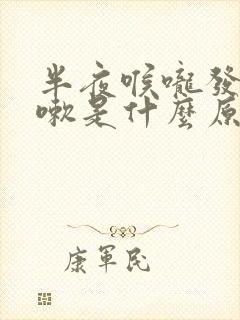 半夜喉嚨發
嗽是什麼原
康軍民